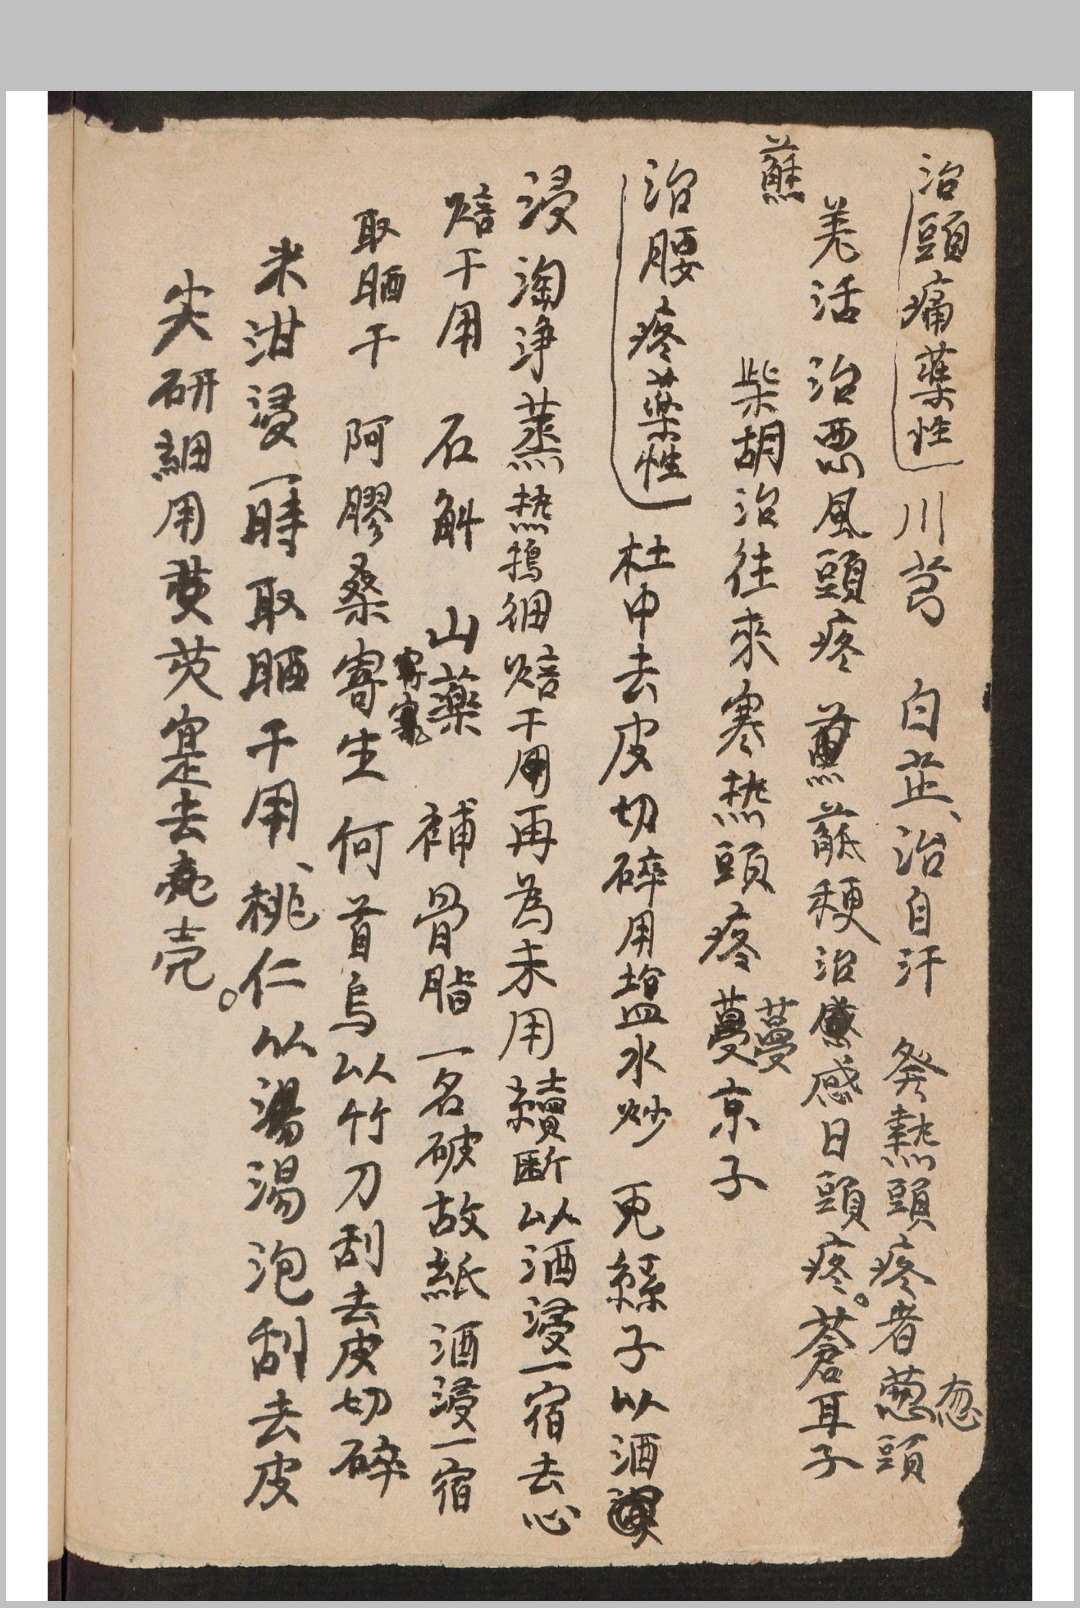 治頭痛藥性 川芎 白芷、治自汗 發熱頭疼者葱頭
忽
羌活 治惡風頭疼 藁 蘇梗治感日頭疼。蒼耳子
蘇
柴胡治往來寒热頭疼 蔓京子
蔓
治腰疼藥性 杜中去皮切碎用塩水炒 兎絲子以酒
浸淘净蒸热搗细焙干用再為末用 續断以酒浸一宿去心
焙干用 石斛 山藥 補骨脂一名破故紙酒浸一宿
取晒干 阿膠桑寄生何首烏以竹刀刮去皮切碎
寄寓
米泔浸一時取晒干用、桃仁以湯湯泡刮去皮
尖研細用 茨茨寔去壳